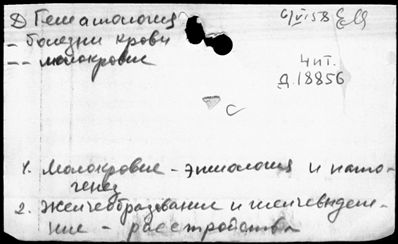 Д Гематология
6/VI 58
- болезни крови
-- малокровие
Чит.
Д.18856
1. Малокровие - этиология и пато-
генез
2. Желчеобразование и желчевыделе-
ние - расстройства